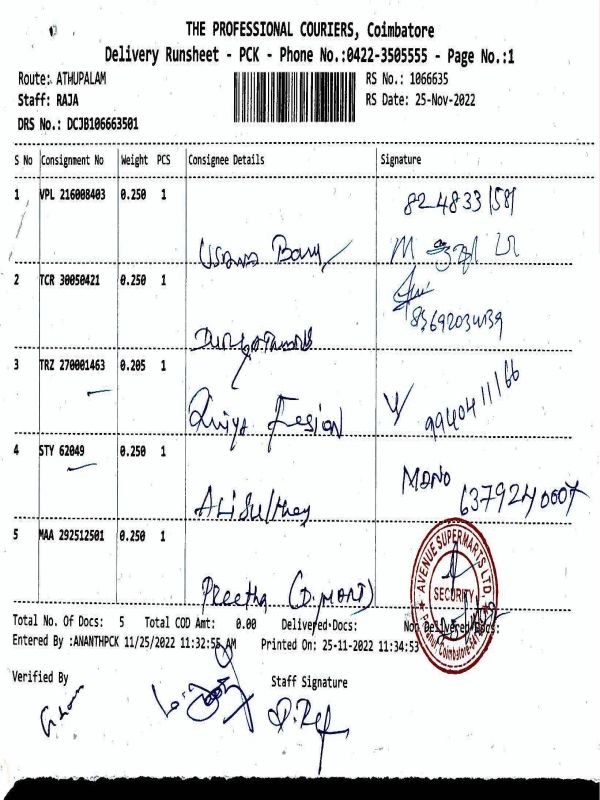 THE PROFESSIONAL COURIERS, Coimbatore
Delivery Runsheet - PCK - Phone No.:0422-3505555 - Page No.:1
Route: ATHUPALAM RS No.: 1066635
Staff: RAJA RS Date: 25-Nov-2022
DRS No.: DCJB106663501
S No Consignment No Weight PCS Consignee Details Signature
1 VPL 216008403 0.250 1
2 TCR 30050421 0.250 1
8369203439
3 TRZ 270001463 0.205 1
9940411166
4 STY 62049 0.250 1
MONO 6379240007
5 MAA 292512501 0.250 1
Preetha (D.MART)
AVENUE SUPERMARTS LTD.
SECURITY
Total No. Of Docs: 5 Total COD Amt: 0.00 Delivered Docs: Non Delivered Docs:
Entered By :ANANTHPCK 11/25/2022 11:32:55 AM Printed On: 25-11-2022 11:34:53
Verified By Staff Signature